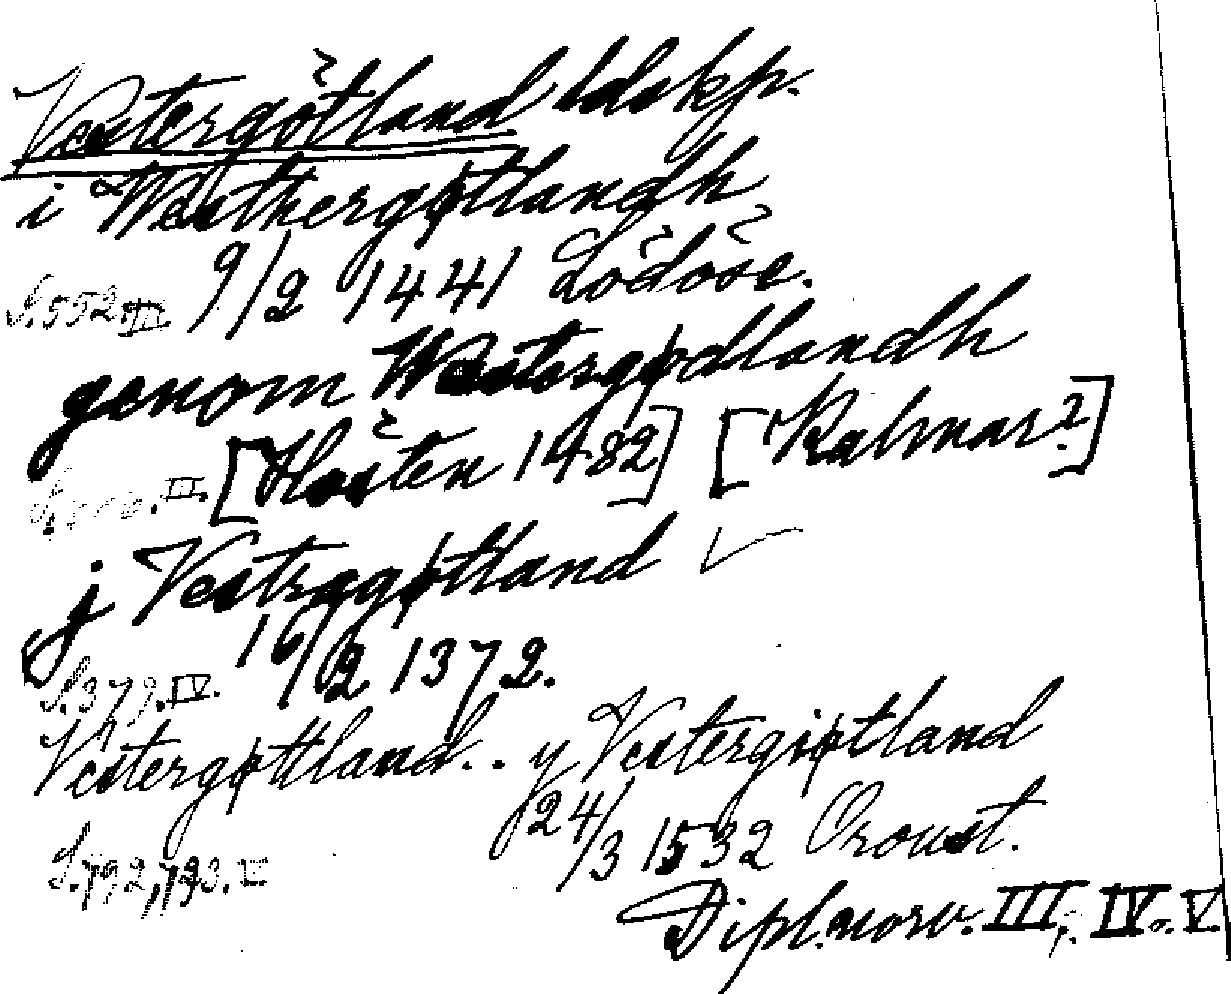 Vestergötland ldskp.
i Westhergøtlandh
S. 552. III 9/2 1441 Lödöse.
genom Westergødlandh
S. III. [Hösten 1482] [Kalmar?]
j Vestragøtland
16/2 1372.
S. 379. IV.
Vestergøttland.. y Vestergiøtland
24/3 1532 Oroust.
S. 792, 793. V
Dipl. norv. III, IV. V.